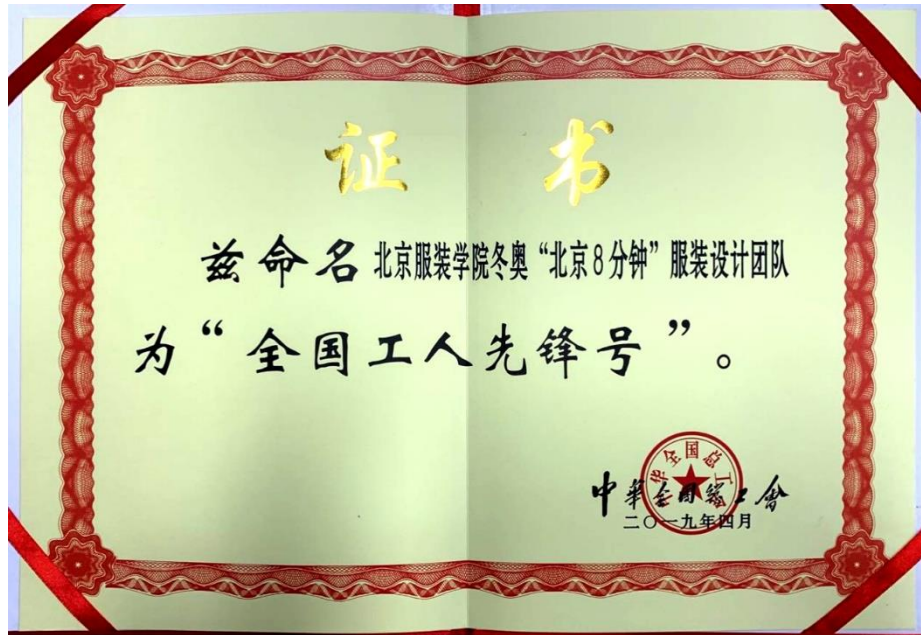 证 书
兹命名北京服装学院冬奥“北京8分钟”服装设计团队
为“全国工人先锋号”。
中華全国總工會
二〇一九年四月
中华全国总工会